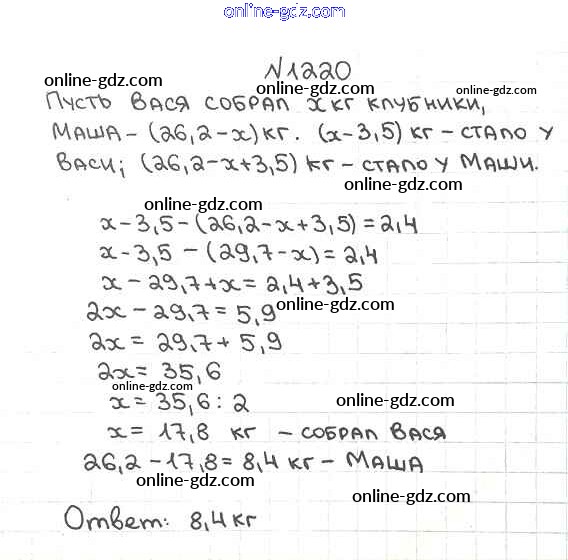 online-gdz.com
N1220
online-gdz.com online-gdz.com online-gdz.com
Пусть Вася собрал x кг клубники,
Маша - (26,2-x) кг. (x-3,5) кг - стало у
Васи; (26,2-x+3,5) кг - стало у Маши.
online-gdz.com online-gdz.com
online-gdz.com
x-3,5-(26,2-x+3,5)=2,4
x-3,5-(29,7-x)=2,4
x-29,7+x=2,4+3,5
2x-29,7=5,9 online-gdz.com
2x=29,7+5,9
2x=35,6
online-gdz.com
x=35,6:2 online-gdz.com
x=17,8 кг - собрал Вася
26,2-17,8=8,4 кг - Маша
online-gdz.com
online-gdz.com
Ответ: 8,4 кг